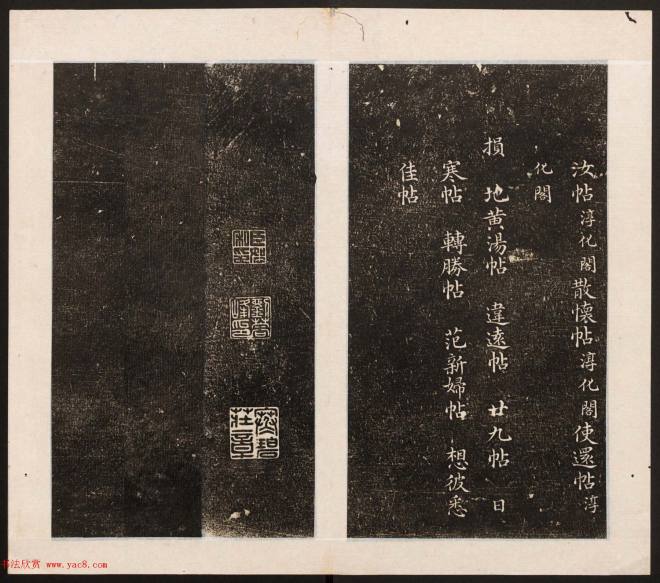 汝帖淳化閣散懷帖淳化閣使還帖淳
化閣
損 地黄湯帖 違遠帖 廿九帖 日
寒帖 轉勝帖 范新婦帖 想彼悉
佳帖
书法欣赏 www.yac8.com